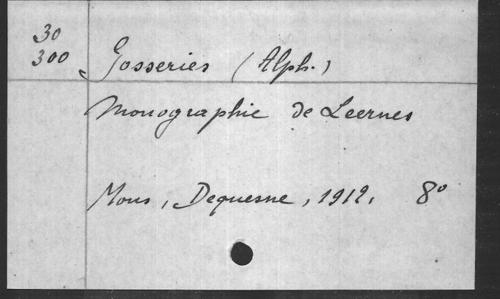 30
300
Gosseries (Alph.)
Monographie de Leernes
Mons, Dequesne, 1912, 8º